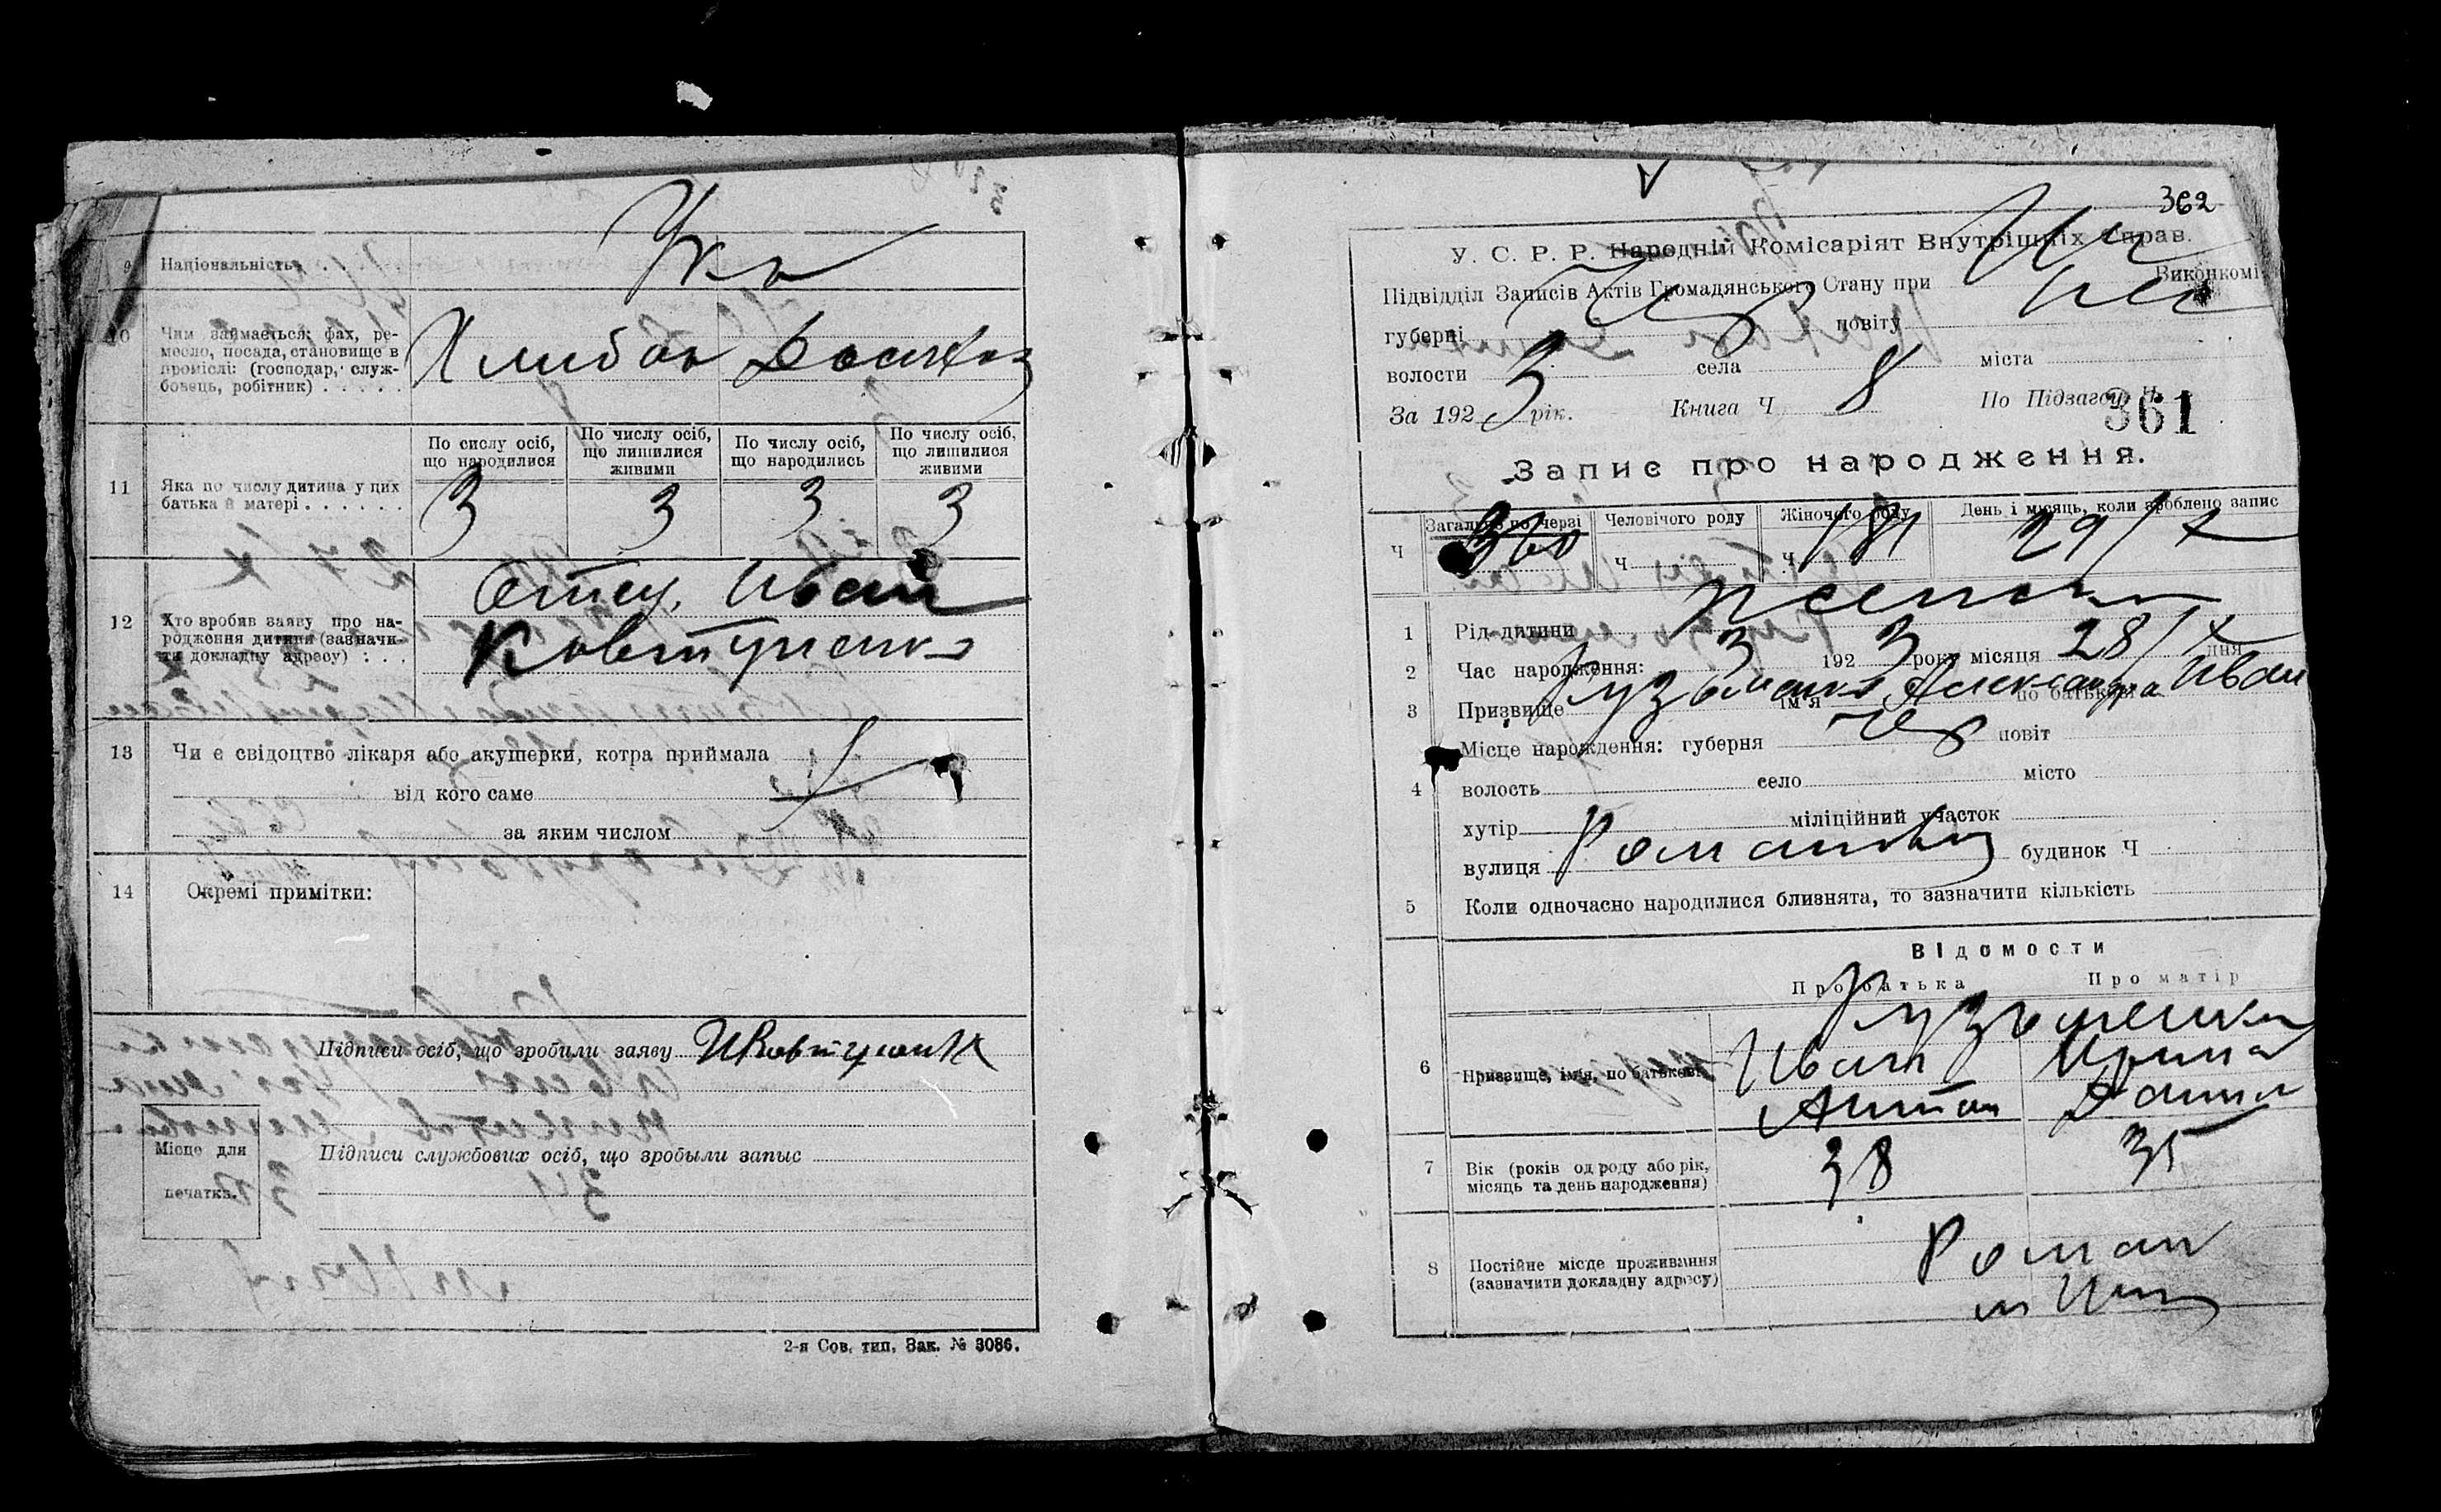 9 Національність . . .
Укр
10 Чим займається: фах, ре-
месло, посада, становище в
проміслі: (господар, служ-
бовець, робітник) . . . . .
Хлибоп
По сислу осіб, що народилися
По числу осіб, що лишилися живими
По числу осіб, що народились
По числу осіб, що лишилися живими
11 Яка по числу дитина у цих
батька й матері . . . . . .
3 3 3 3
12 Хто вробив заяву про на-
родження дитини (зазначи-
ти докладну адресу) : . .
Отец. Иван
Ковтуненко
13 Чи є свідоцтво лікаря або акушерки, котра приймала
від кого саме
за яким числом
14 Окремі примітки:
Підписи осіб, що зробили заяву
Місце для
печатки.
Підписи службових осіб, що зробыли запыс
2-я Сов. тип. Зак. № 3086.
362
У. С. Р. Р. Народній Комісаріят Внутрішніх Справ.
Підвідділ Записів Актів Громадянського Стану при Виконкомі
губерні повіту
волости села міста
За 1923 рік. Книга Ч 8 По Підзагол. Ч.
361
Запис про народження.
Загально по черзі Человічого роду Жіночого роду День і місяць, коли зроблено запис
Ч 360 Ч Ч 181 29/X
1 Рід дитини женск
2 Час народження: 3 1923 року місяця 28/X дня
3 Призвище Кузьменко ім'я Александра по батькові Иван
4 Місце нарождення: губерня повіт
волость село місто
хутір міліційний участок
вулиця будинок Ч
5 Коли одночасно народилися близнята, то зазначити кількість
Відомости
Про батька Про матір
Кузьменко
6 Призвище, ім'я, по батькові
Иван Ирина
Антон Данил
7 Вік (років од роду або рік,
місяць та день народження)
38 35
8 Постійне місце проживання
(зазначити докладну адресу)
Роман